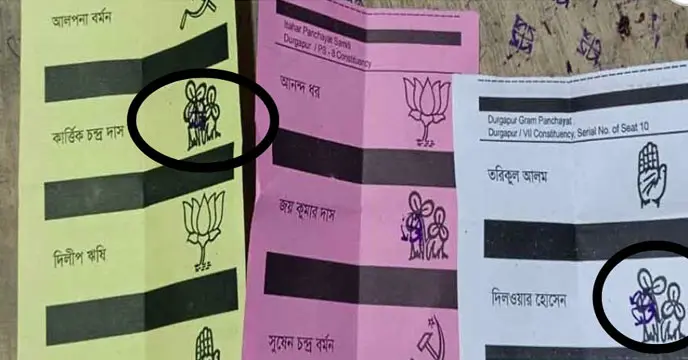 আলপনা বর্মন
কার্ত্তিক চন্দ্র দাস
দিলীপ ঋষি
Itahar Panchayat Samiti
Durgapur / PS - 8 Constituency
আনন্দ ধর
জয় কুমার দাস
সুষেন চন্দ্র বর্মন
Durgapur Gram Panchayat
Durgapur / VII Constituency, Serial No. of Seat 10
তরিকুল আলম
দিলওয়ার হোসেন